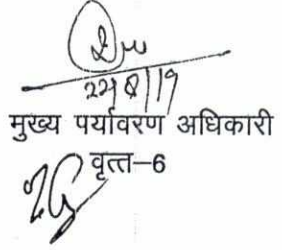 22/8/19
मुख्य पर्यावरण अधिकारी
वृत्त-6